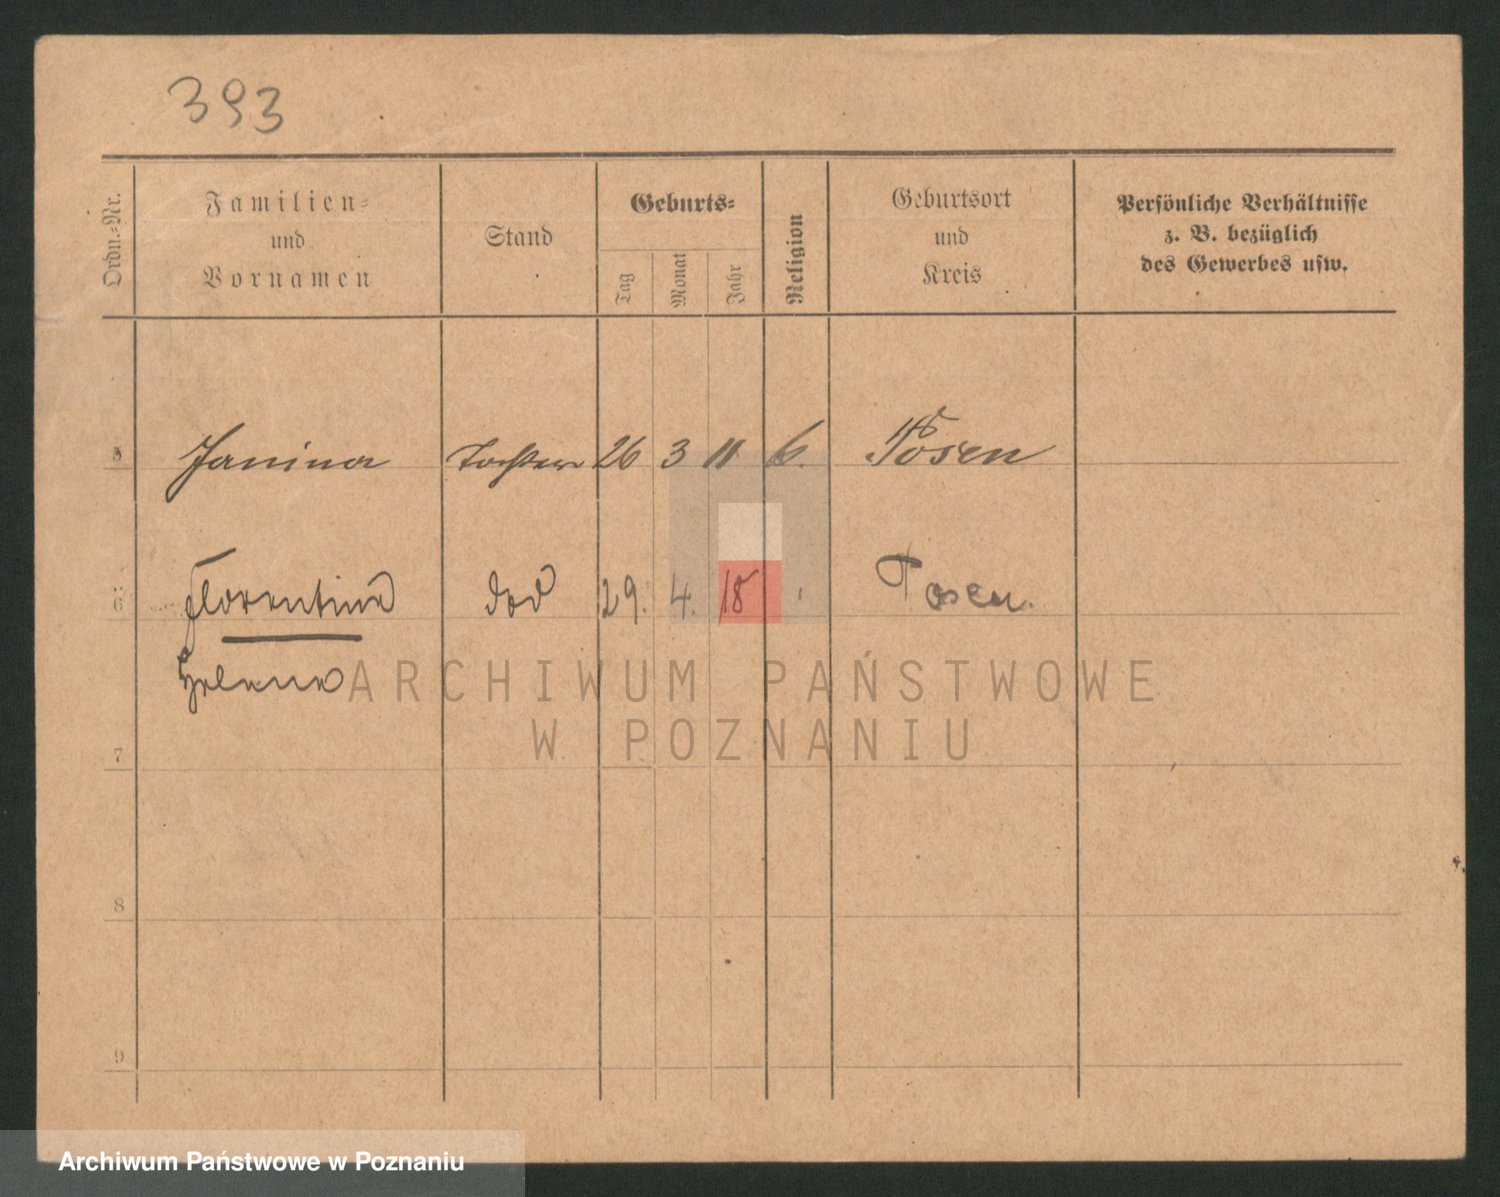 393
Ordn.-Nr.
Familien-
und
Vornamen
Stand
Geburts-
Tag
Monat
Jahr
Religion
Geburtsort
und
Kreis
Persönliche Verhältnisse
z. B. bezüglich
des Gewerbes usw.
5 Janina Tochter 26 3 11 k. Posen
6 Florentina 29. 4. 18 Posen.
Helena
7
8
9
ARCHIWUM PAŃSTWOWE
W POZNANIU
Archiwum Państwowe w Poznaniu